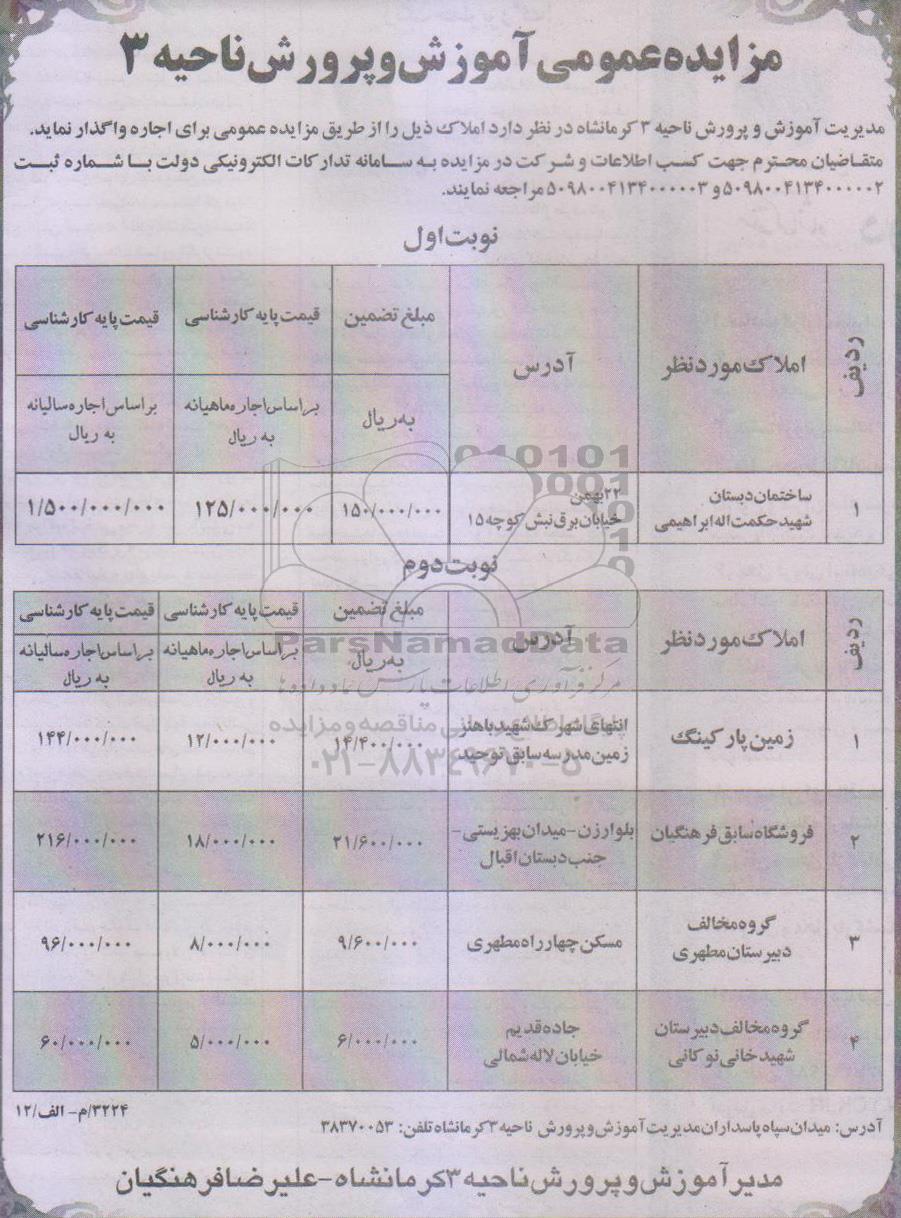 مزایده عمومی آموزش و پرورش ناحیه ۳
مدیریت آموزش و پرورش ناحیه ۳ کرمانشاه در نظر دارد املاک ذیل را از طریق مزایده عمومی برای اجاره واگذار نماید.
متقاضیان محترم جهت کسب اطلاعات و شرکت در مزایده به سامانه تدارکات الکترونیکی دولت با شماره ثبت
۵۰۹۸۰۰۴۱۳۴۰۰۰۰۰۲ و ۵۰۹۸۰۰۴۱۳۴۰۰۰۰۰۳ مراجعه نمایند.
نوبت اول
ردیف
املاک مورد نظر
آدرس
مبلغ تضمین
به ریال
قیمت پایه کارشناسی
براساس اجاره ماهیانه
به ریال
قیمت پایه کارشناسی
براساس اجاره سالیانه
به ریال
۱
ساختمان دبستان
شهید حکمت اله ابراهیمی
۲۲ بهمن
خیابان برق نبش کوچه ۱۵
۱۵۰/۰۰۰/۰۰۰
۱۲۵/۰۰۰/۰۰۰
۱/۵۰۰/۰۰۰/۰۰۰
نوبت دوم
ردیف
املاک مورد نظر
آدرس
مبلغ تضمین
به ریال
قیمت پایه کارشناسی
براساس اجاره ماهیانه
به ریال
قیمت پایه کارشناسی
براساس اجاره سالیانه
به ریال
۱
زمین پارکینگ
انتهای شهرک شهید باهنر
زمین مدرسه سابق توحید
۱۴/۴۰۰/۰۰۰
۱۲/۰۰۰/۰۰۰
۱۴۴/۰۰۰/۰۰۰
۲
فروشگاه سابق فرهنگیان
بلوار زن - میدان بهزیستی -
جنب دبستان اقبال
۲۱/۶۰۰/۰۰۰
۱۸/۰۰۰/۰۰۰
۲۱۶/۰۰۰/۰۰۰
۳
گروه مخالف
دبیرستان مطهری
مسکن چهارراه مطهری
۹/۶۰۰/۰۰۰
۸/۰۰۰/۰۰۰
۹۶/۰۰۰/۰۰۰
۴
گروه مخالف دبیرستان
شهید خانی نوکانی
جاده قدیم
خیابان لاله شمالی
۶/۰۰۰/۰۰۰
۵/۰۰۰/۰۰۰
۶۰/۰۰۰/۰۰۰
ParsNamadData
مرکز فرآوری اطلاعات پارس نماد داده ها
مناقصه و مزایده
۰۲۱-۸۸۳۴۹۶۷۰-۵
۳۲۲۴/م- الف/۱۲
آدرس: میدان سپاه پاسداران مدیریت آموزش و پرورش ناحیه ۳ کرمانشاه تلفن: ۳۸۳۷۰۰۵۳
مدیر آموزش و پرورش ناحیه ۳ کرمانشاه - علیرضا فرهنگیان